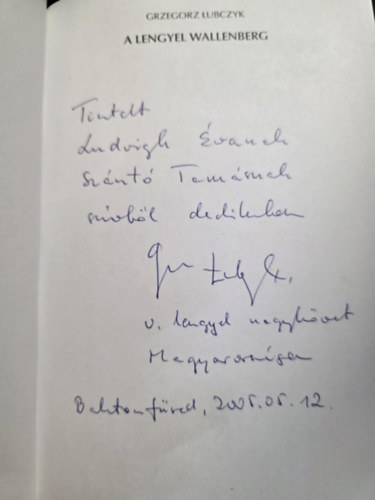 GRZEGORZ ŁUBCZYK
A LENGYEL WALLENBERG
Tisztelt
Ludvigh Évának
Szántó Tamásnak
szívből dedikálom
v. lengyel nagykövet
Magyarországon
Balatonfüred, 2005.05.12.